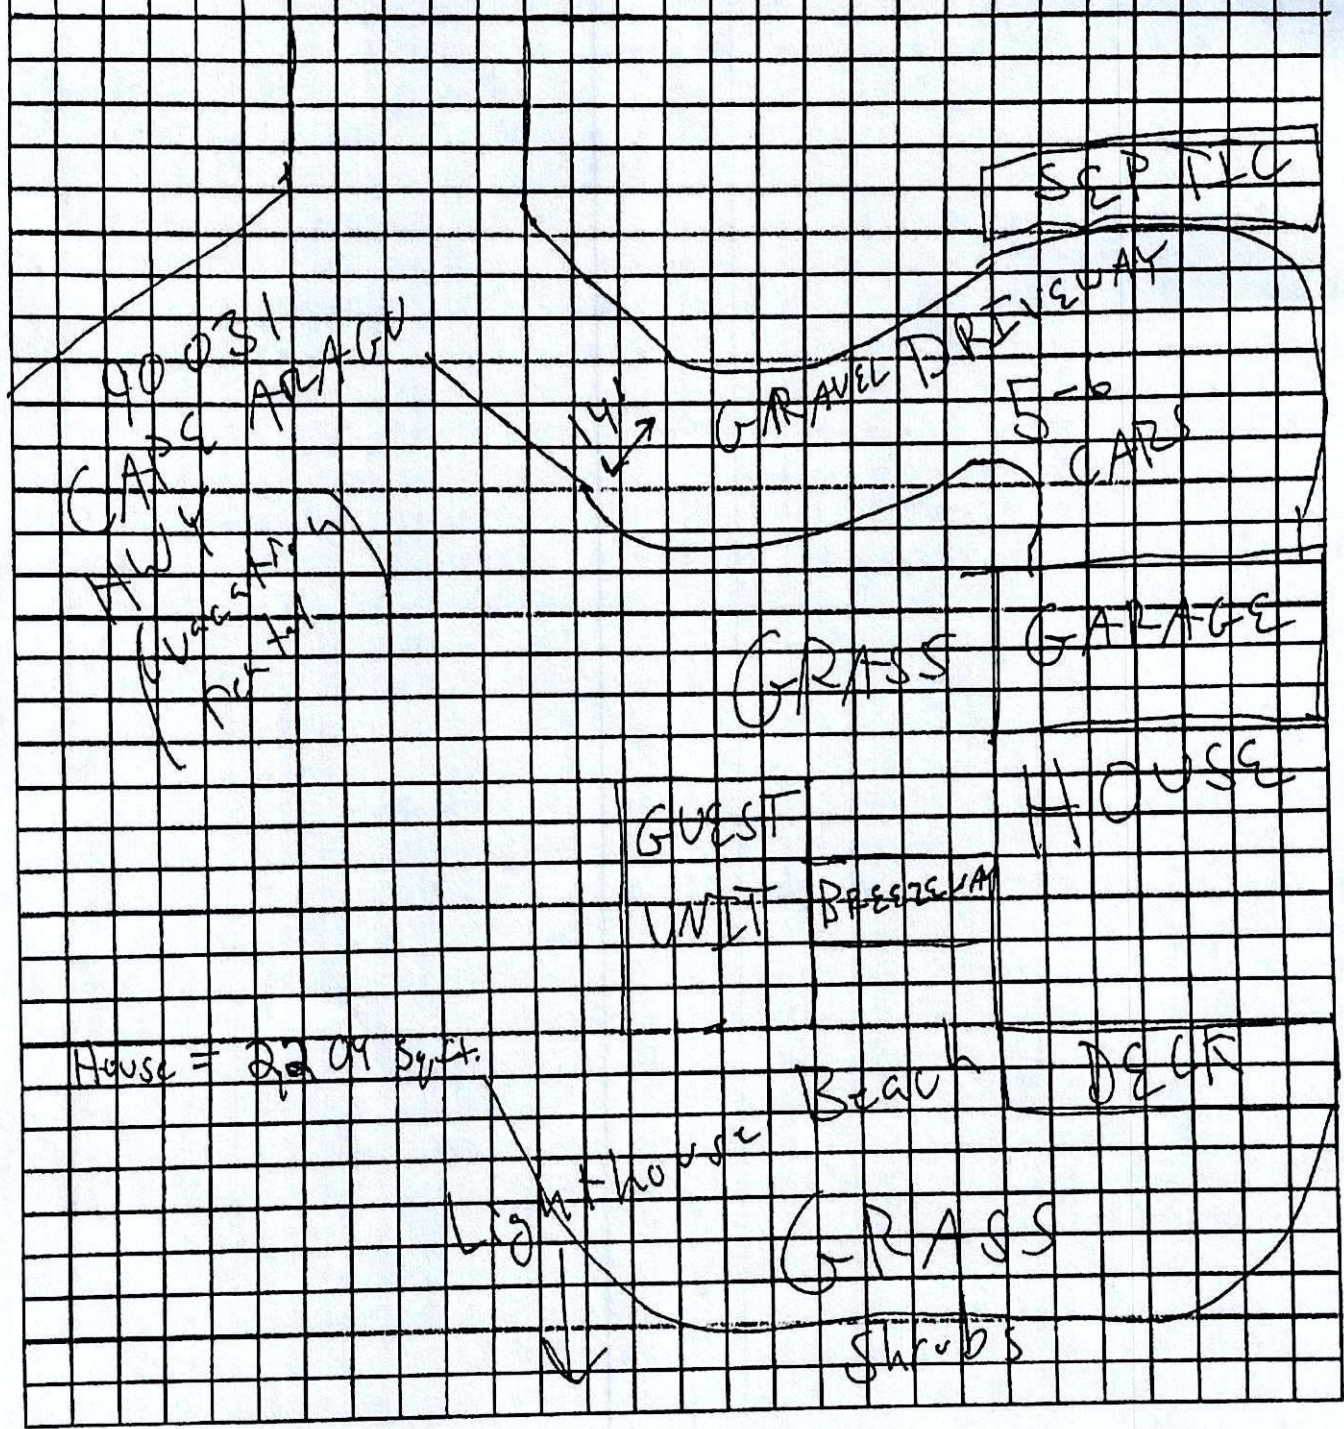 SEPTIC
90031
CAPE ARAGO
HWY
(vacation
rental
14'
GRAVEL DRIVEWAY
5-6
CARS
GARAGE
GRASS
HOUSE
GUEST
UNIT
BREEZEWA
House = 2,204 sq.ft.
Beach
DECK
Lighthouse
GRASS
Shrubs